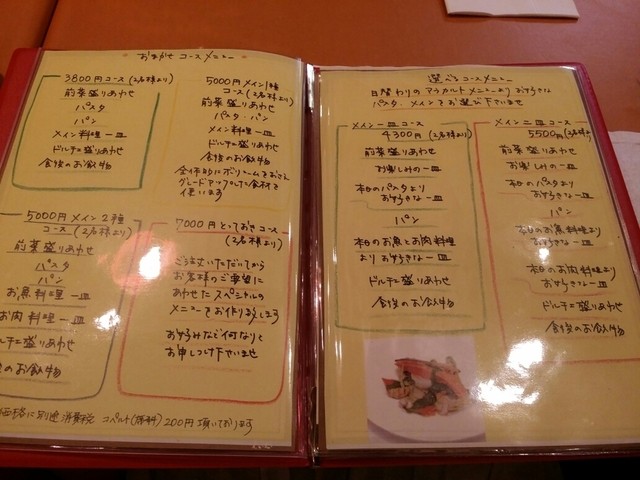 おまかせ コースメニュー
3800円コース (2名様より)
前菜盛りあわせ
パスタ
パン
メイン料理一皿
ドルチェ盛りあわせ
食後のお飲物
5000円 メイン1種
コース (2名様より)
前菜盛りあわせ
パスタ・パン
メイン料理一皿
ドルチェ盛りあわせ
食後のお飲物
全体的にボリュームをおさえ
グレードアップした食材を
使います
5000円 メイン2種
コース (2名様より)
前菜盛りあわせ
パスタ
パン
お魚料理一皿
お肉料理一皿
ドルチェ盛りあわせ
食後のお飲物
7000円 とっておきコース
(2名様より)
ご注文いただいてから
お客様のご要望に
あわせた スペシャルの
メニューでお作り致します
お好みなど何なりと
お申しつけ下さいませ
価格に別途消費税 コペルト(席料) 200円 頂いております
選べるコースメニュー
日替わりのアラカルトメニューより お好きな
パスタ・メインをお選び下さいませ
メイン一皿コース
4300円 (2名様より)
前菜盛りあわせ
お楽しみの一皿
本日のパスタより
お好きな一皿
パン
本日のお魚とお肉料理
より お好きな一皿
ドルチェ盛りあわせ
食後のお飲物
メイン二皿コース
5500円 (2名様より)
前菜盛りあわせ
お楽しみの一皿
本日のパスタより
お好きな一皿
パン
本日のお魚料理より
お好きな一皿
本日のお肉料理より
お好きな一皿
ドルチェ盛りあわせ
食後のお飲物